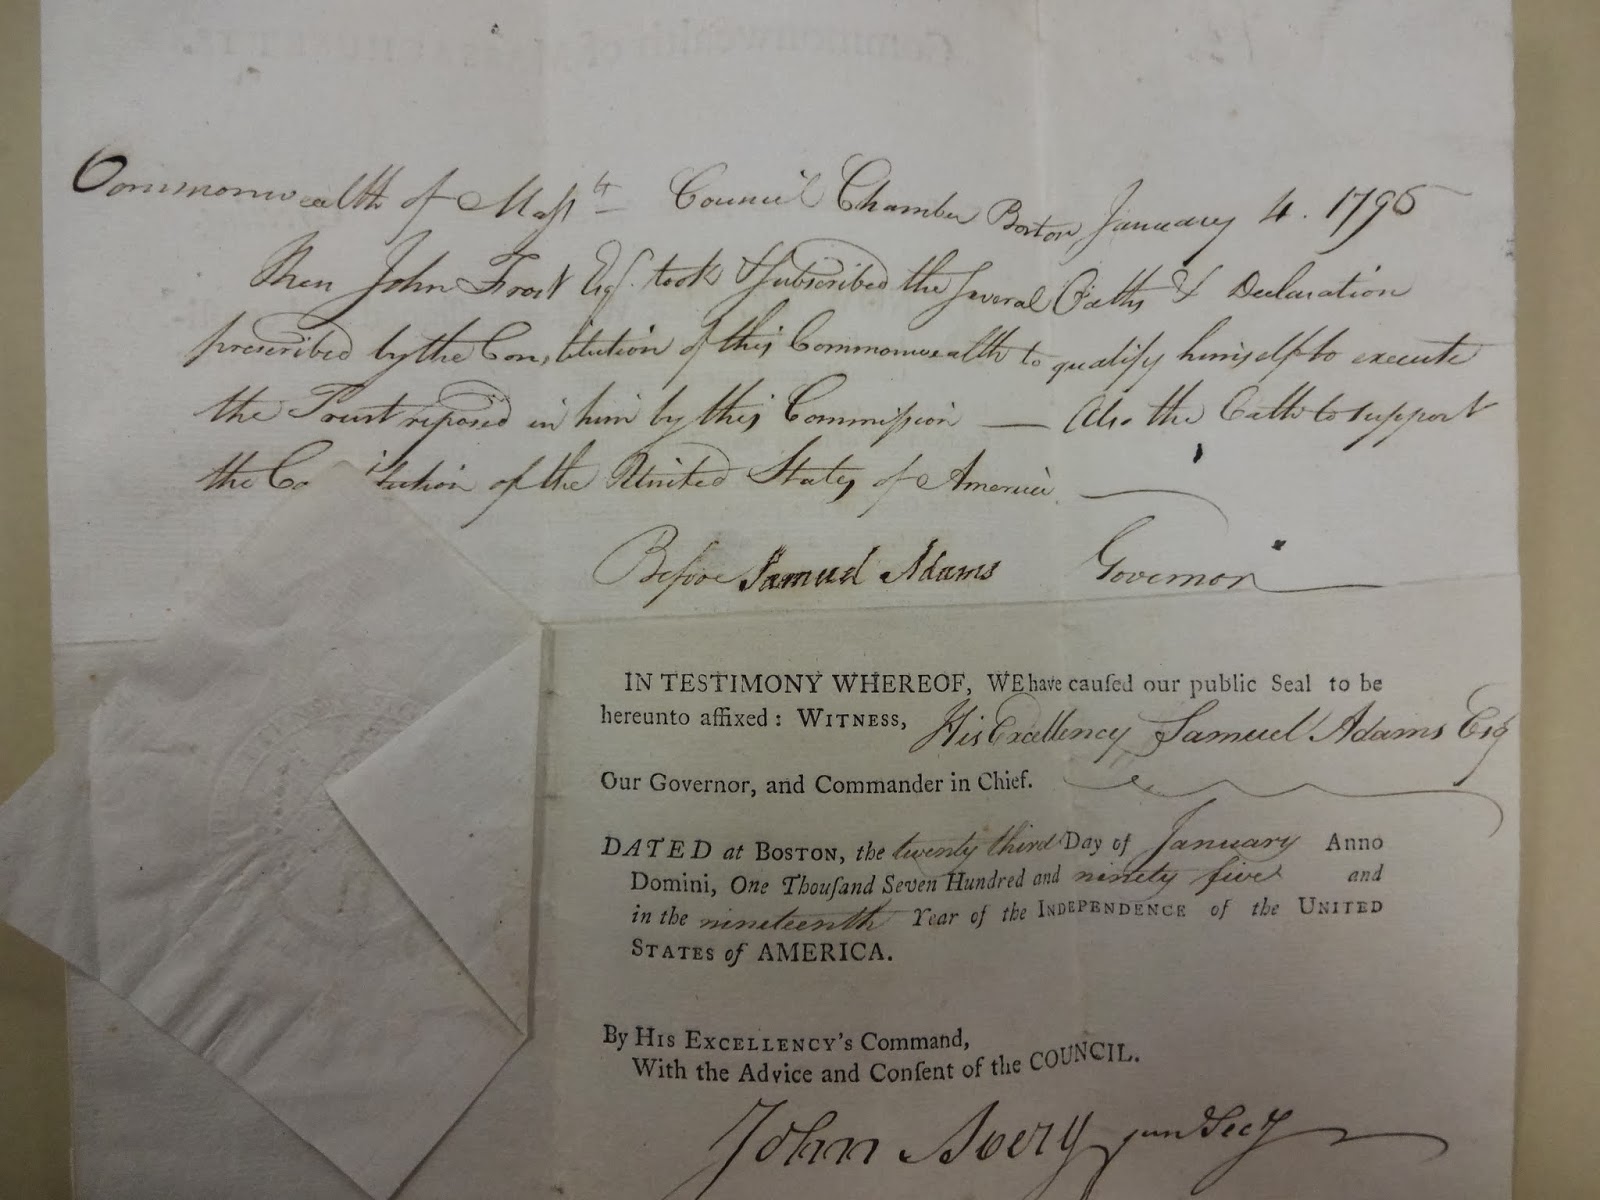 Commonwealth of Massts Council Chamber Boston January 4. 1796
Then John Frost Esqr. took & Subscribed the Several Oaths & Declaration
prescribed by the Constitution of this Commonwealth to qualify himself to execute
the Trust reposed in him by this Commission — Also the Oath to support
the Co titution of the United States of America
Before Samuel Adams Governor
IN TESTIMONY WHEREOF, WE have cauſed our public Seal to be
hereunto affixed: WITNESS, His Excellency Samuel Adams Esq
Our Governor, and Commander in Chief.
DATED at BOSTON, the twenty third Day of January Anno
Domini, One Thouſand Seven Hundred and ninety five and
in the nineteenth Year of the INDEPENDENCE of the UNITED
STATES of AMERICA.
By HIS EXCELLENCY's Command,
With the Advice and Conſent of the COUNCIL.
John Avery jun Secy